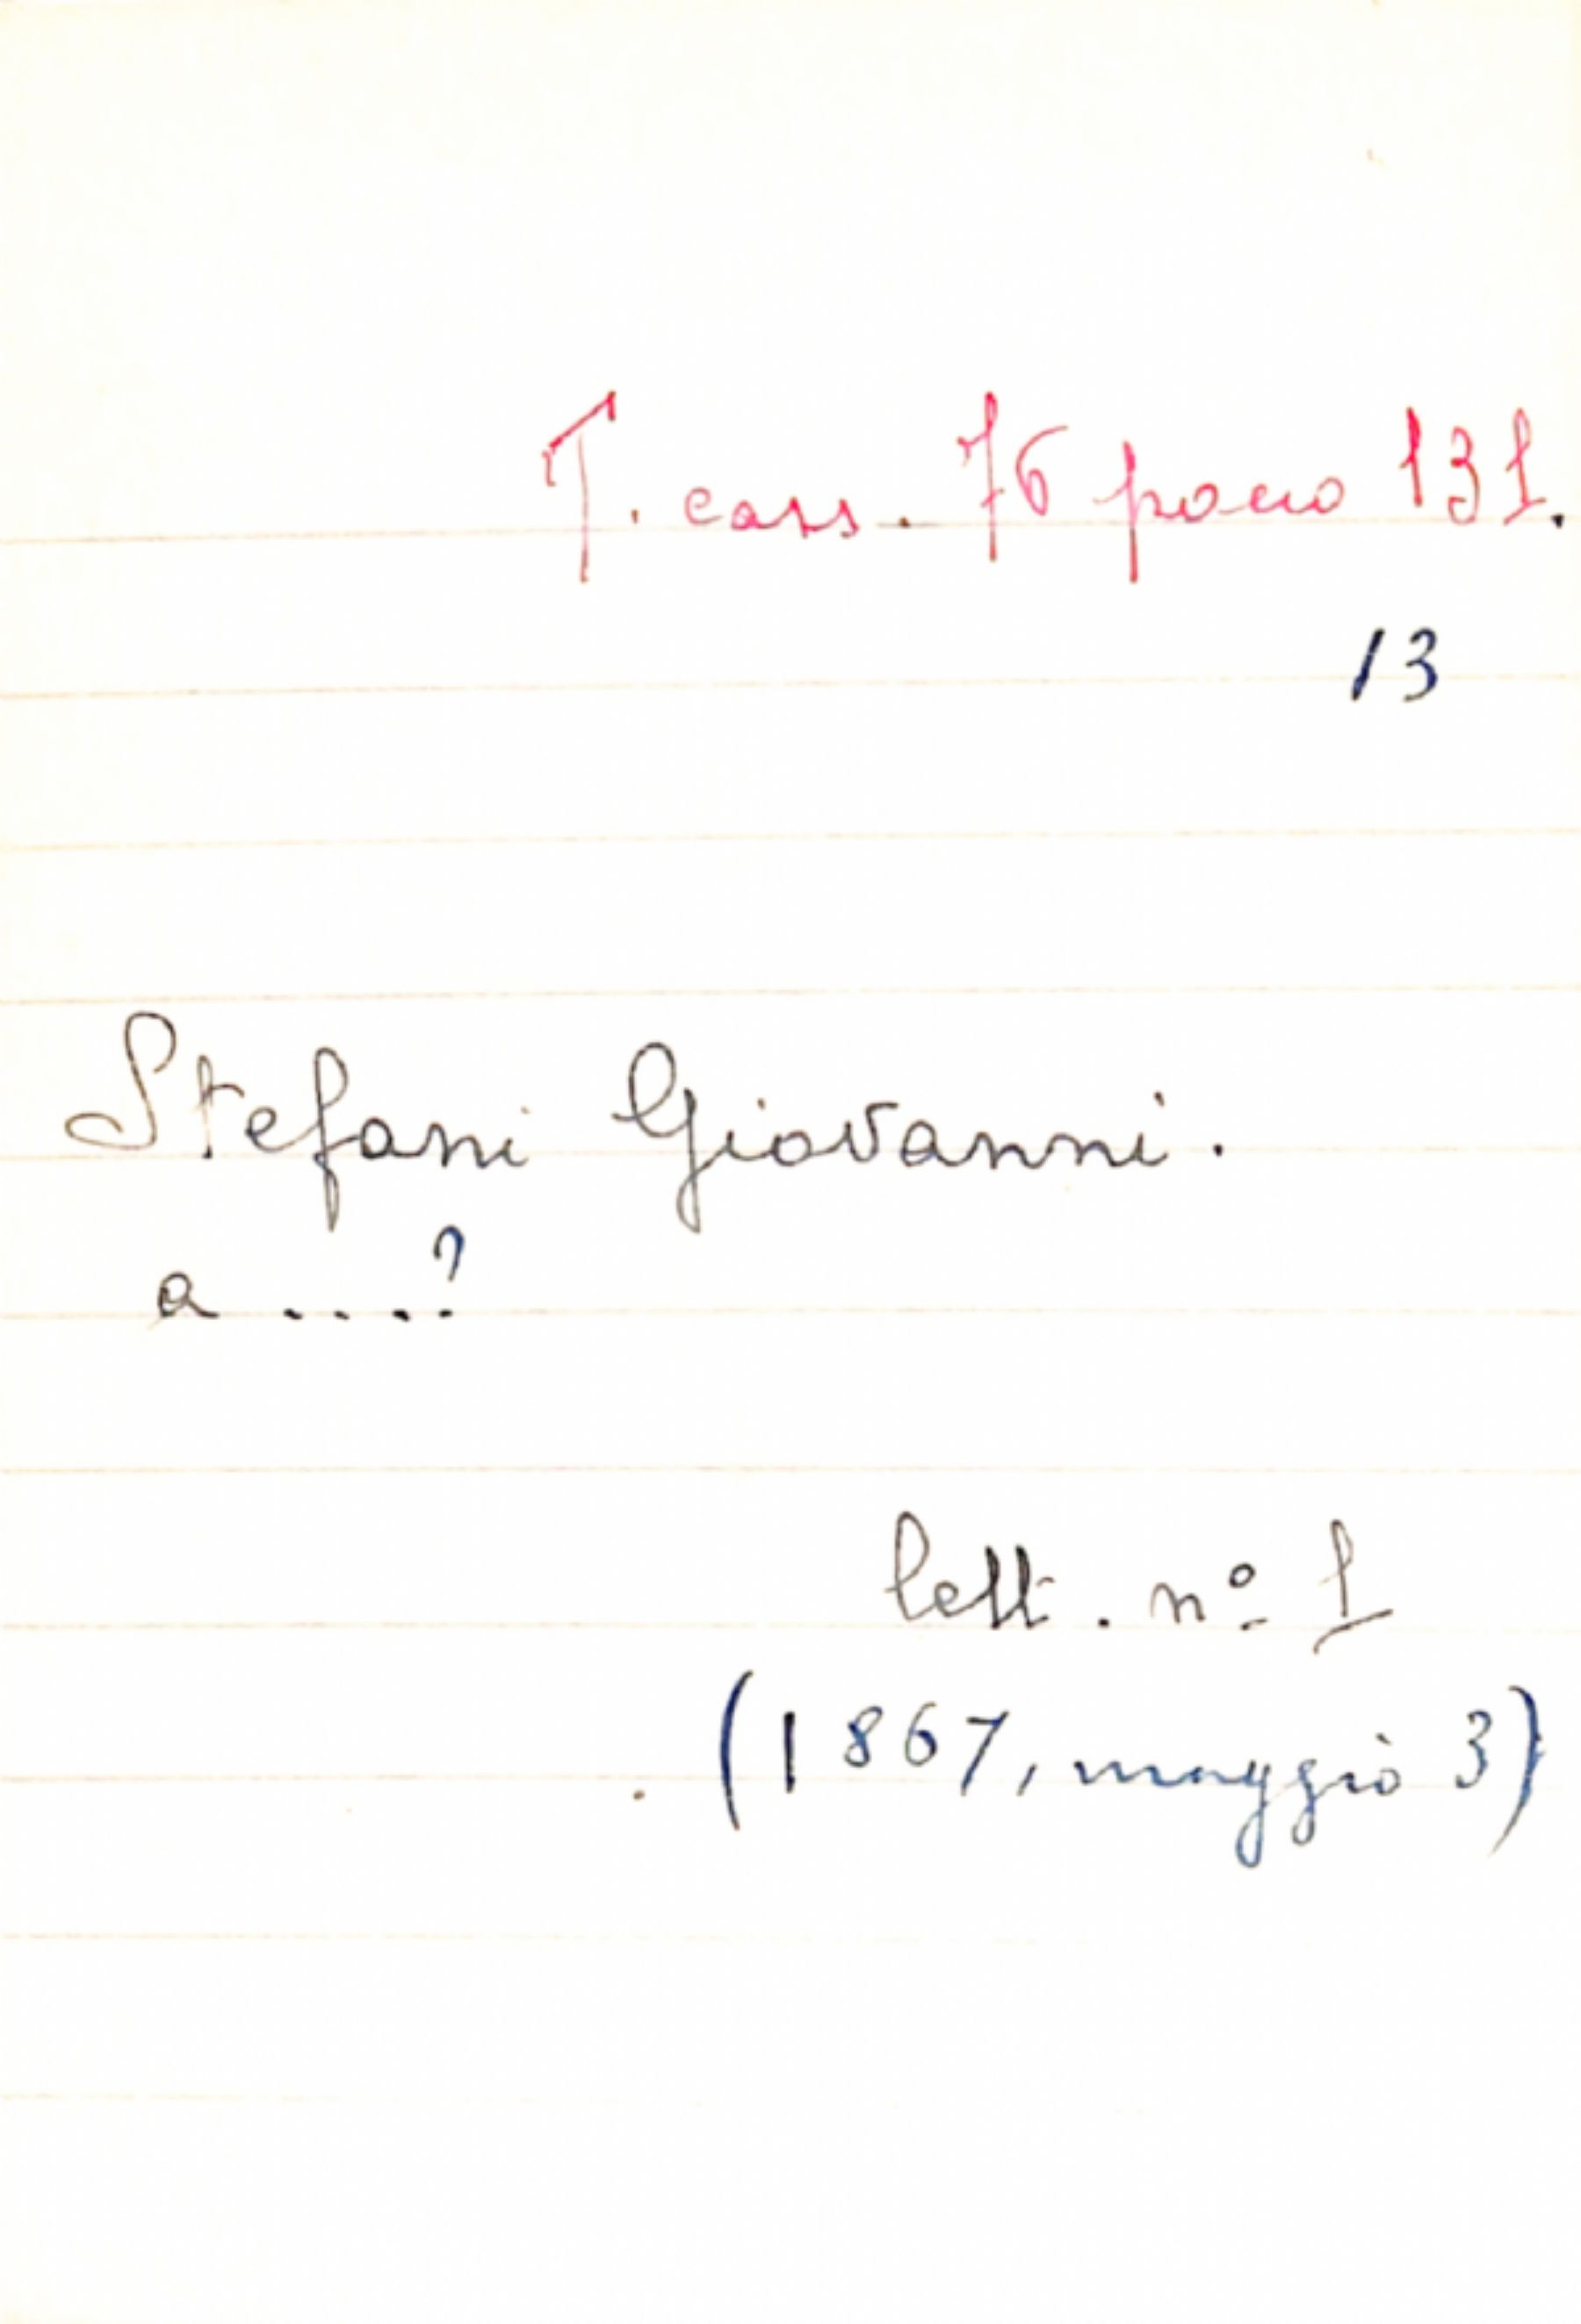 T. cass. 76 pacco 131.
13
Stefani Giovanni.
a ....?
lett. nº 1
(1867, maggio 3)